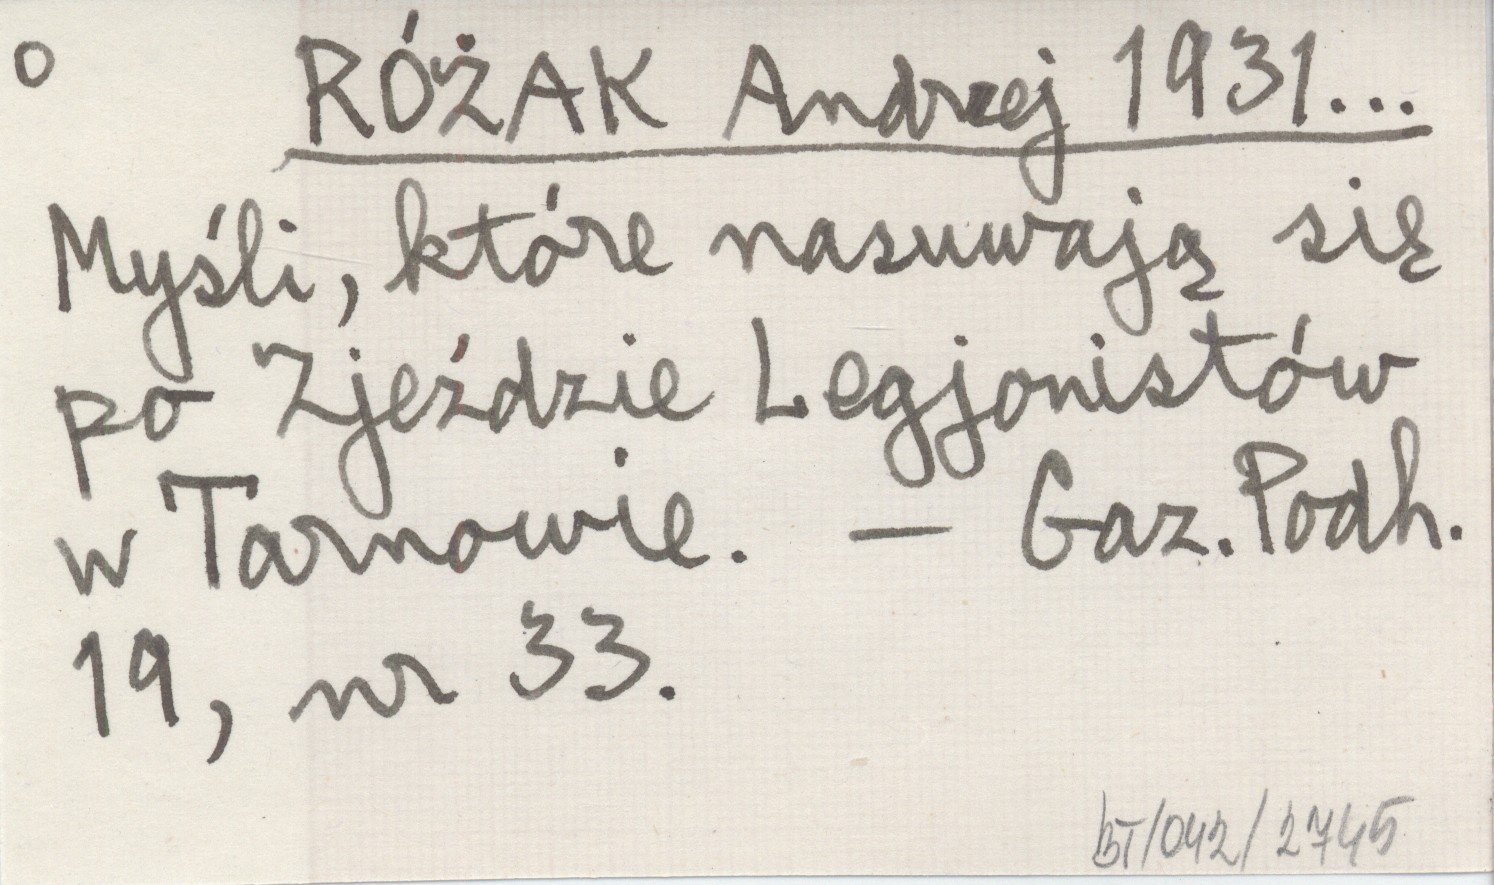 o RÓŻAK Andrzej 1931...
Myśli, które nasuwają się
po Zjeździe Legjonistów
w Tarnowie. — Gaz. Podh.
19, nr 33.
BT/042/2745